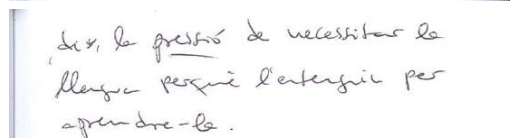 dir, la pressió de necessitar la
llengua perquè l'entenguin per
aprendre-la.